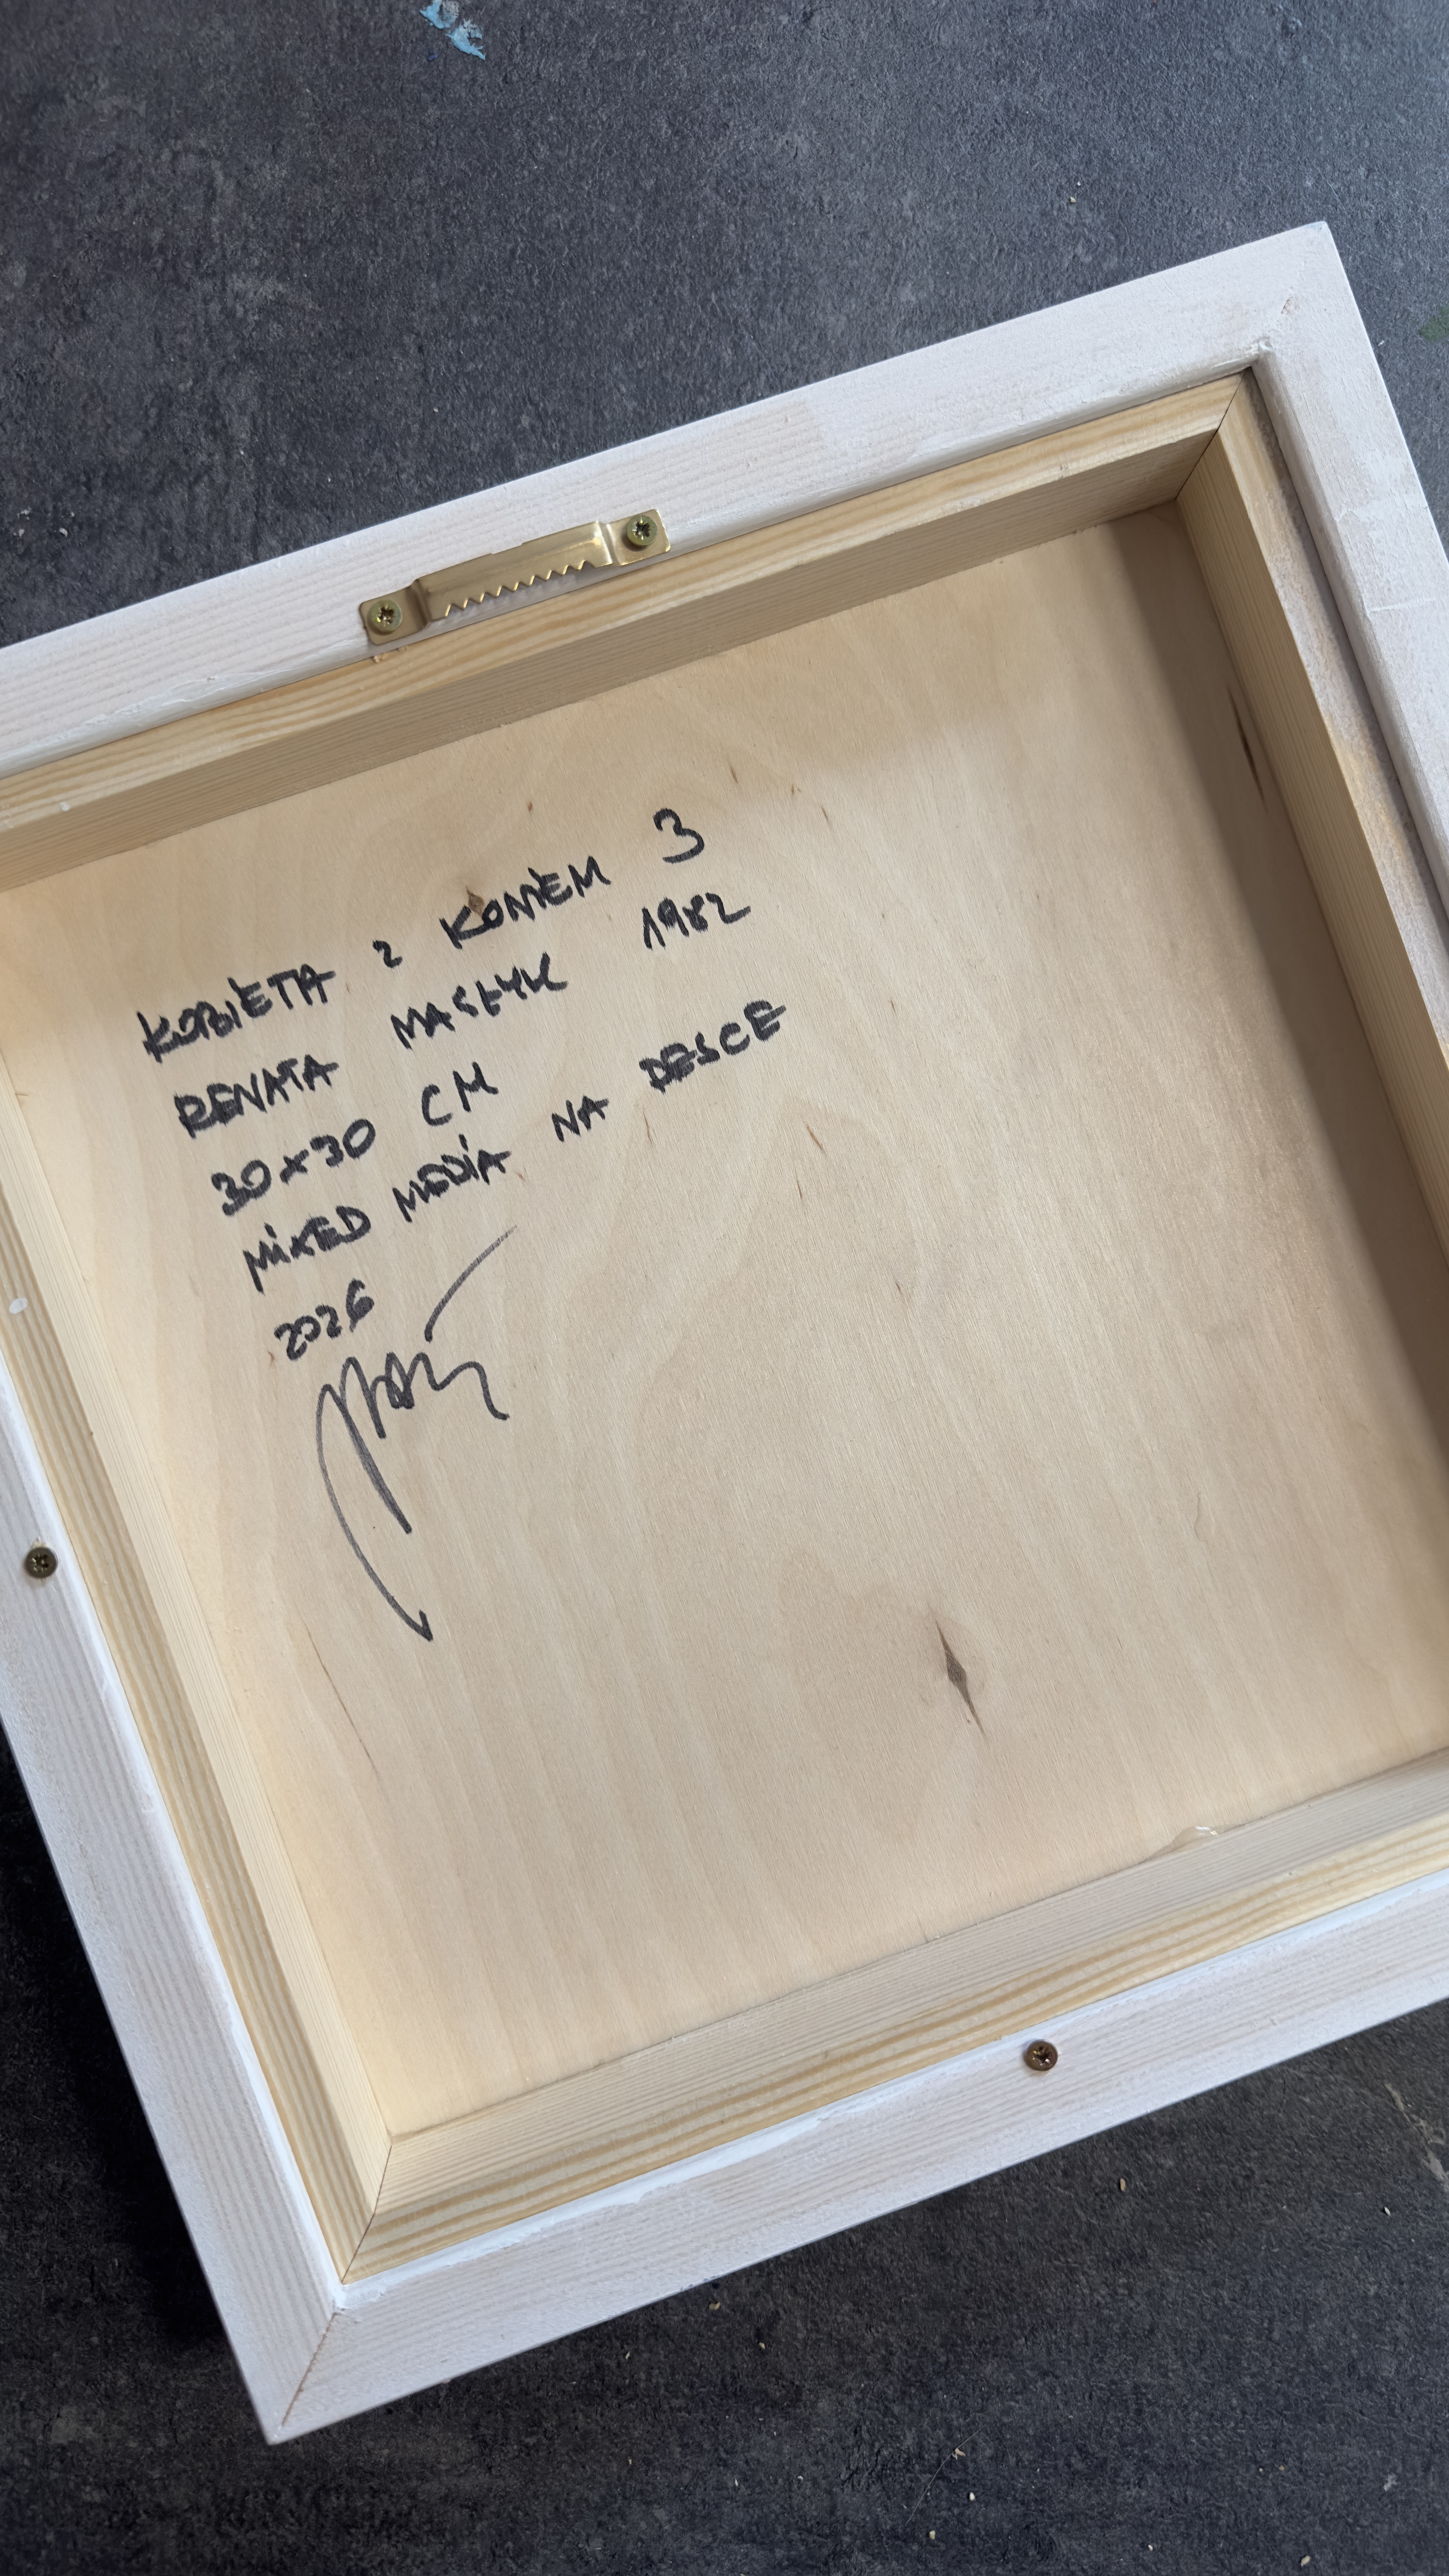 KOBIETA Z KONIEM 3
RENATA MASŁYK 1982
30x30 CM
MIXED MEDIA NA DESCE
2026